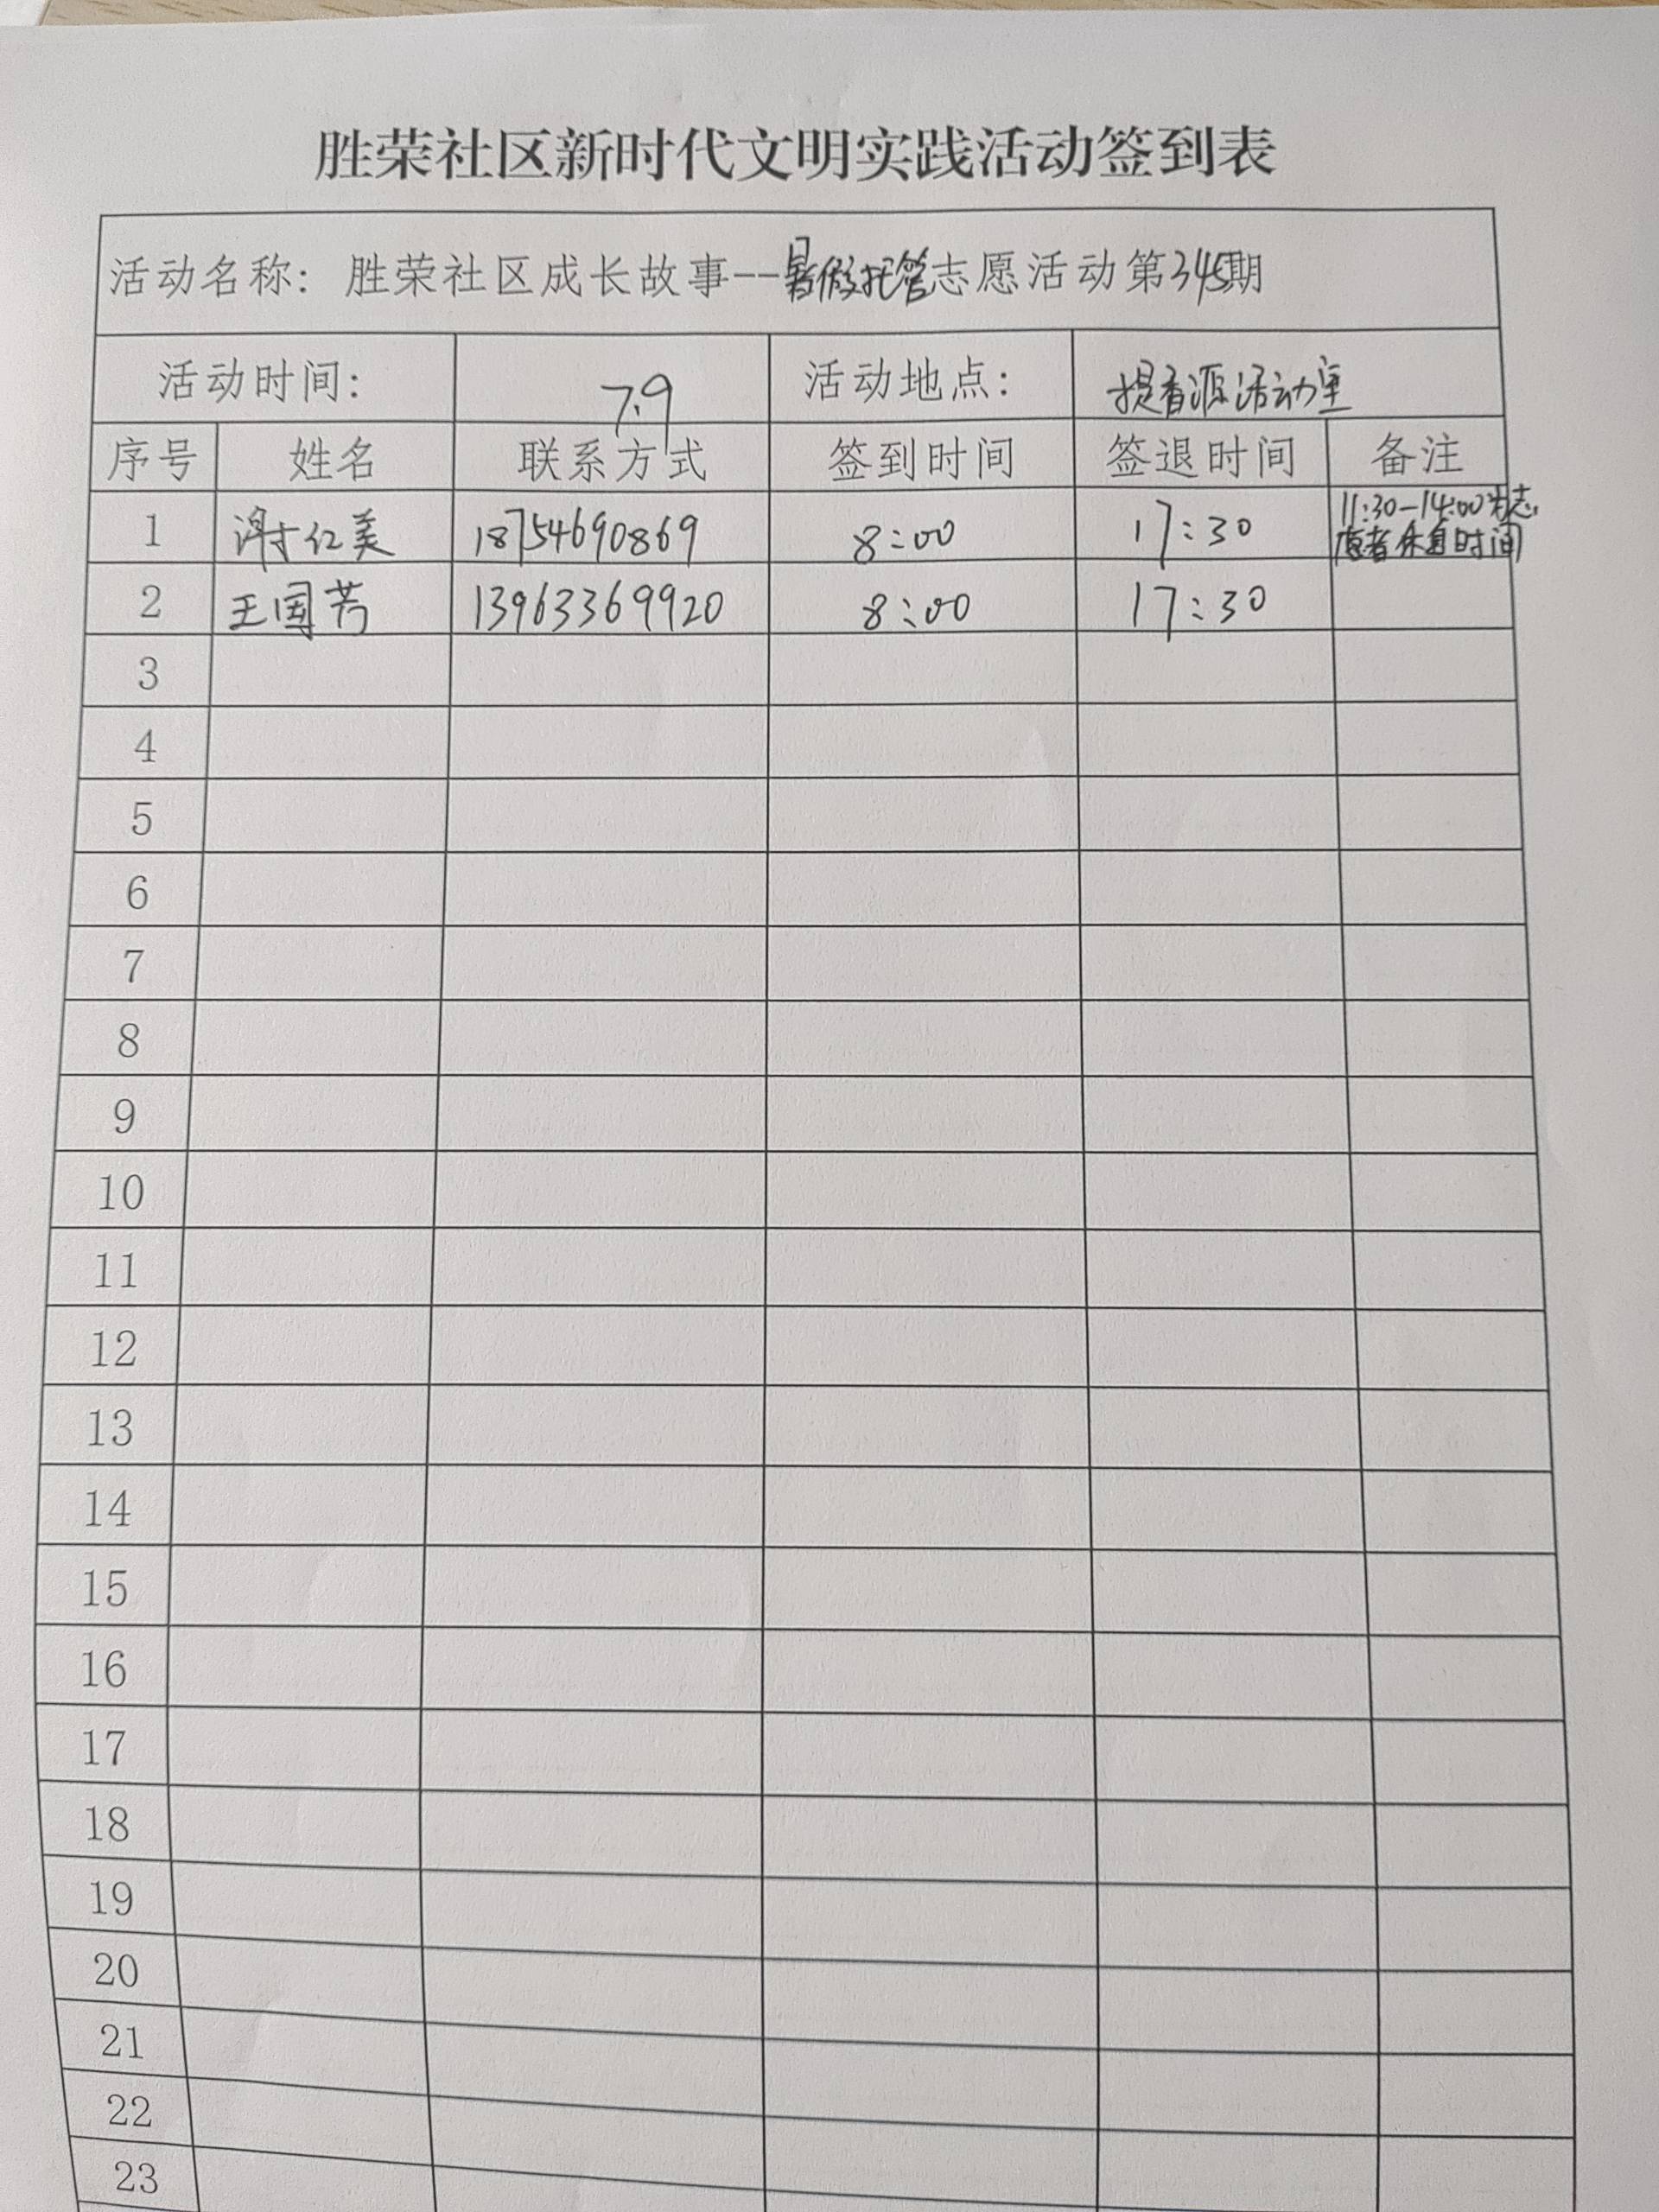 胜荣社区新时代文明实践活动签到表
活动名称：胜荣社区成长故事--暑假托管志愿活动第345期
活动时间： 7.9 活动地点： 提香源活动室
序号 姓名 联系方式 签到时间 签退时间 备注
1 谢红美 18754690869 8:00 17:30 11:30-14:00为志愿者休息时间
2 王国芳 13963369920 8:00 17:30
3
4
5
6
7
8
9
10
11
12
13
14
15
16
17
18
19
20
21
22
23